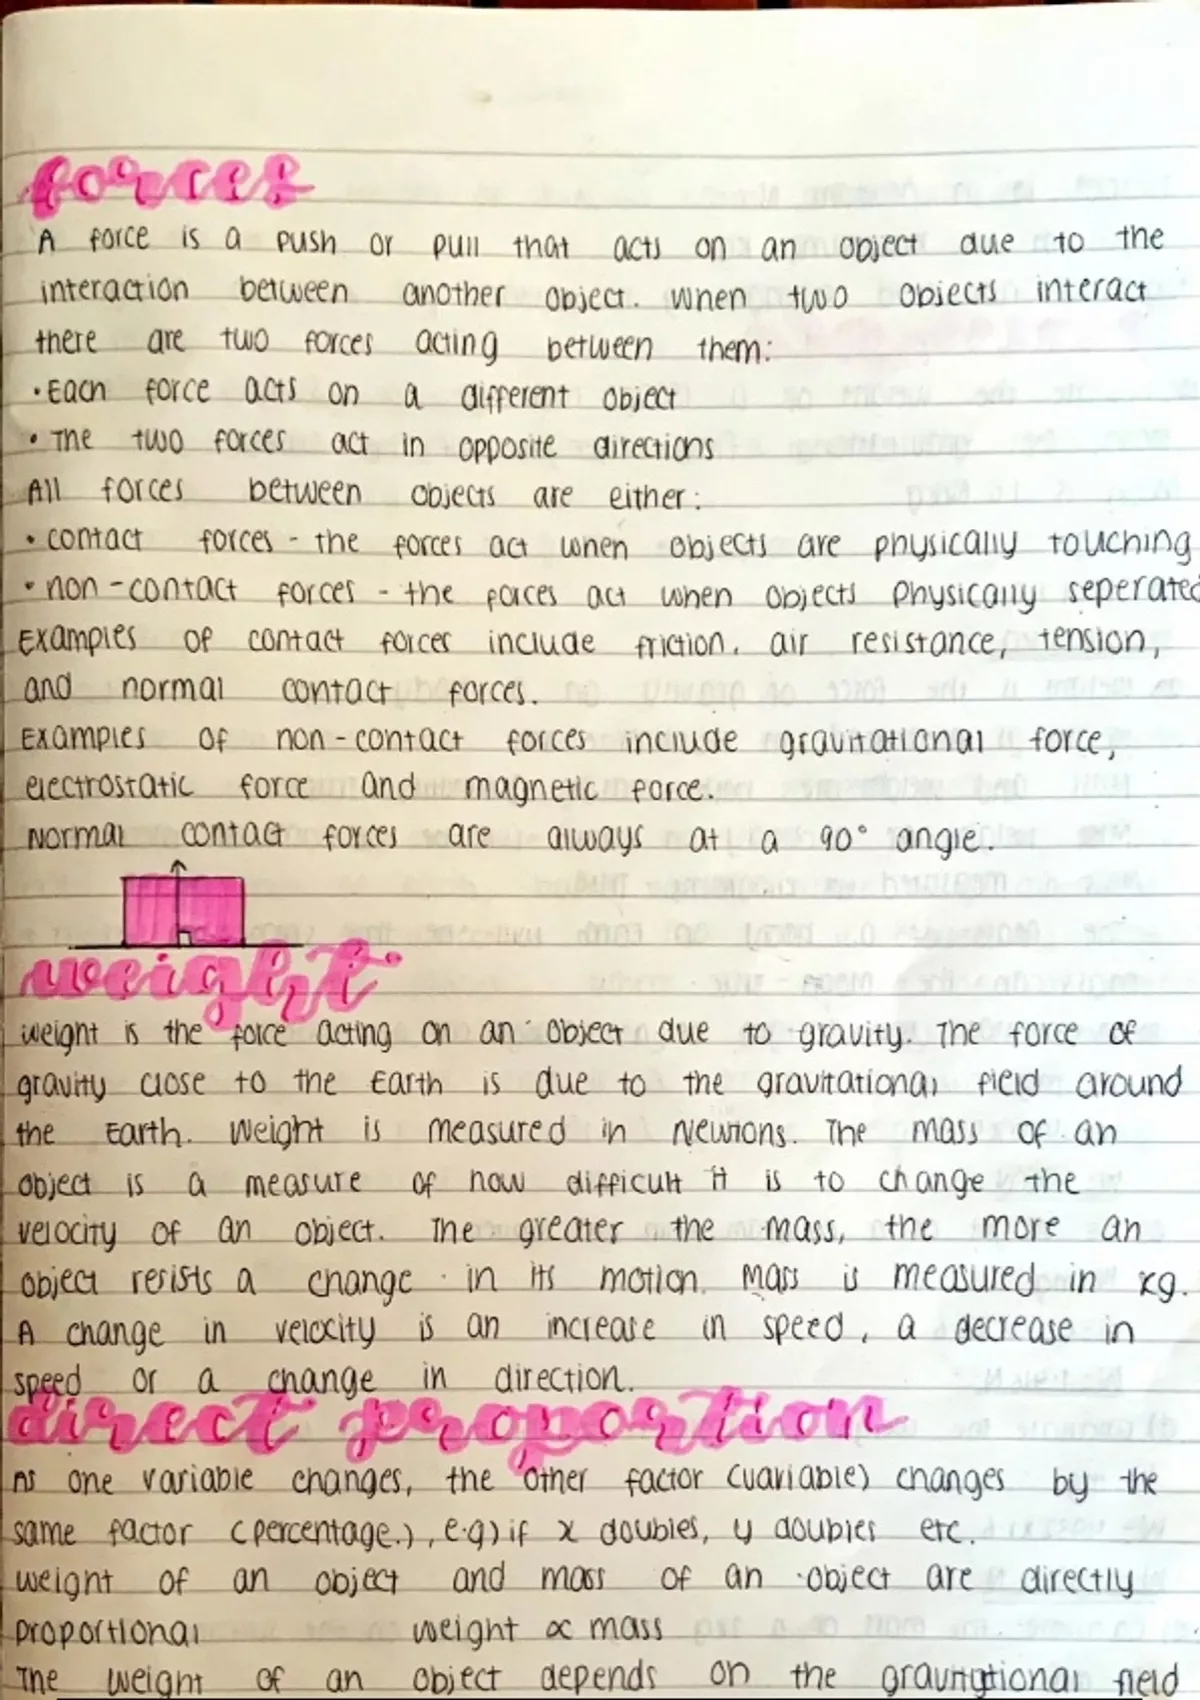 forces
A force is a push or pull that acts on an object due to the
interaction between another object. When two objects interact
there are two forces acting between them:
• Each force acts on a different object
• The two forces act in opposite directions
All forces between objects are either:
• contact forces - the forces act when objects are physically touching
• non-contact forces - the forces act when objects physically seperated
Examples of contact forces include friction, air resistance, tension,
and normal contact forces.
Examples of non-contact forces include gravitational force,
electrostatic force and magnetic force.
Normal contact forces are always at a 90° angle.
weight
Weight is the force acting on an object due to gravity. The force of
gravity close to the Earth is due to the gravitational field around
the Earth. Weight is measured in Newtons. The mass of an
object is a measure of how difficult it is to change the
velocity of an object. The greater the mass, the more an
object resists a change in its motion. Mass is measured in kg.
A change in velocity is an increase in speed, a decrease in
speed or a change in direction.
direct proportion
As one variable changes, the other factor (variable) changes by the
same factor (percentage.), e.g) if x doubles, y doubles etc.
Weight of an object and mass of an object are directly
proportional weight ∝ mass
The weight of an object depends on the gravitational field